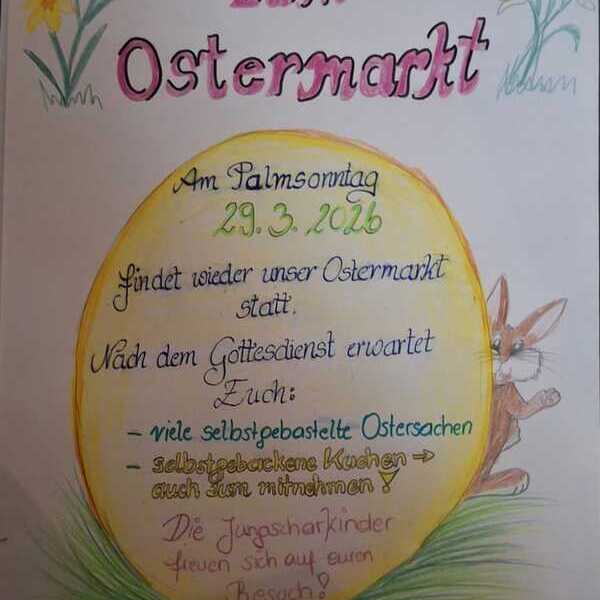 Ostermarkt
Am Palmsonntag
29.3.2026
findet wieder unser Ostermarkt
statt.
Nach dem Gottesdienst erwartet
Euch:
- viele selbstgebastelte Ostersachen
- selbstgebackene Kuchen →
auch zum mitnehmen!
Die Jungscharkinder
freuen sich auf euren
Besuch!